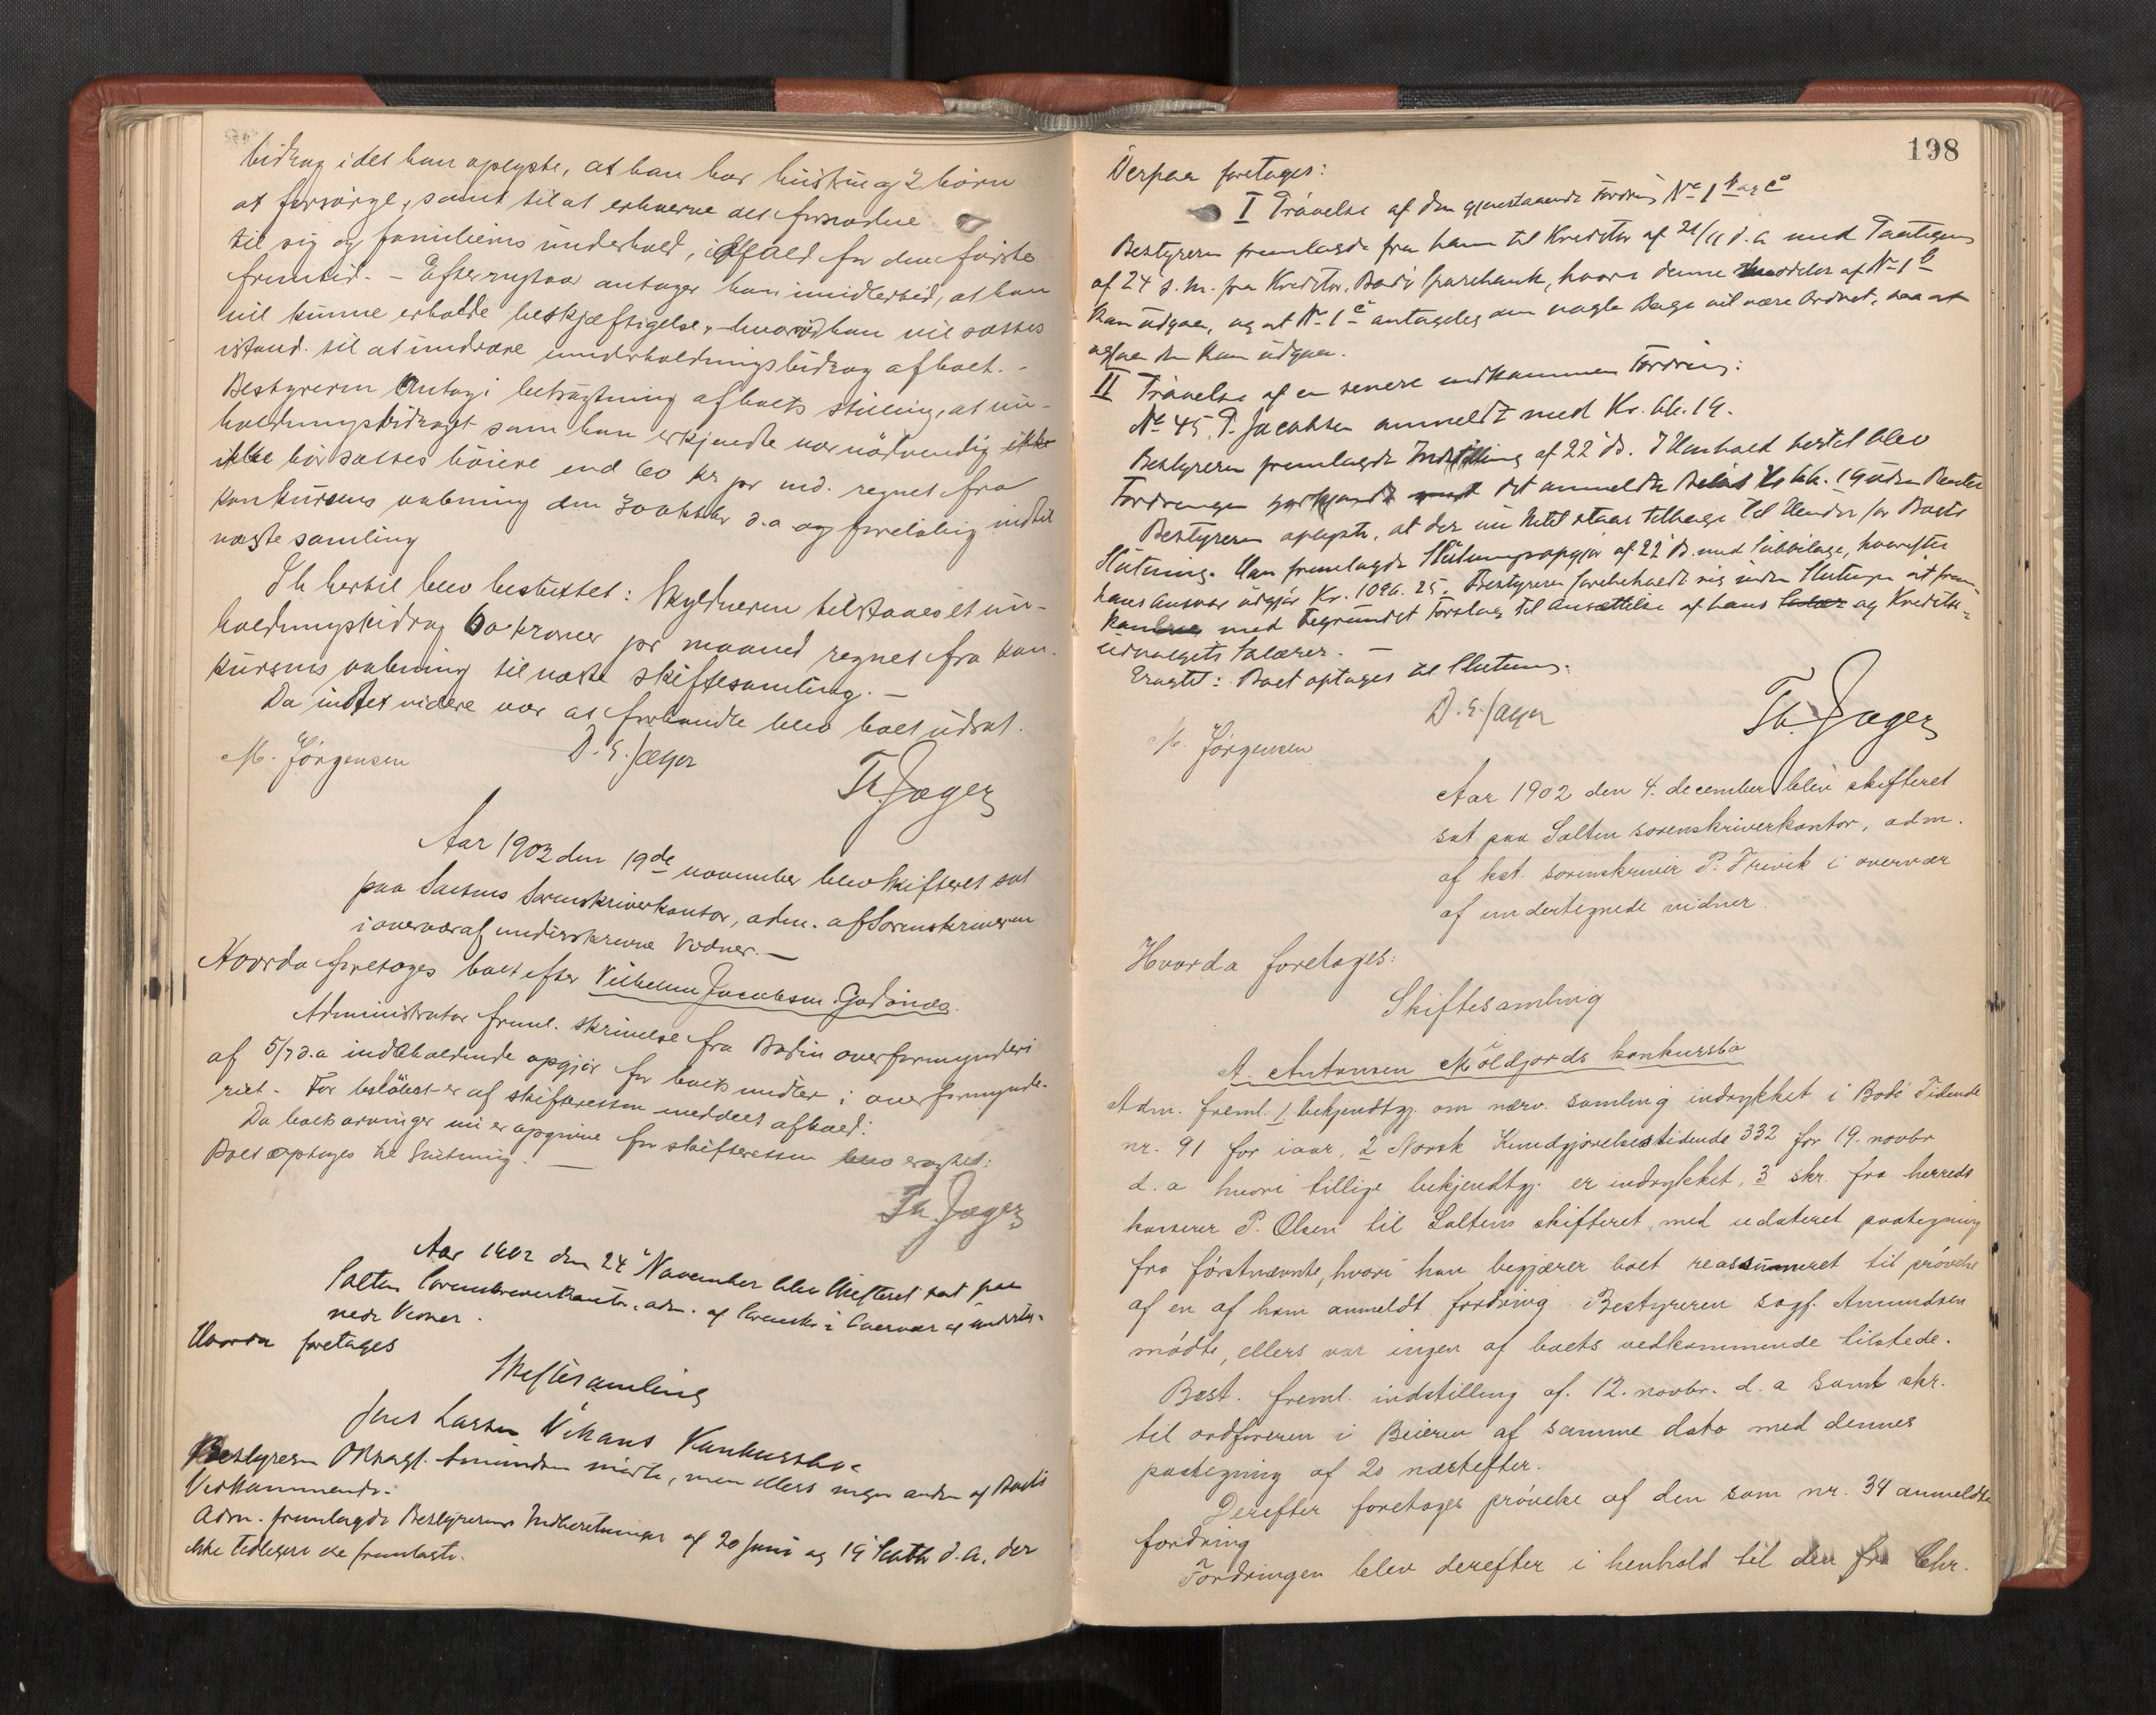 bidrag idet han oplyste, at han har hustru og 2 børn
at forsørge, samt til at erhverve det fornødne
til sig og familiens underhold, ialfald for den første
fremtid. - Efter nytaar antager han imidlertid, at han
vil kunne erholde beskjæftigelse, hvorved han vil sættes
istand til at undvære underholdningsbidrag af boet. -
Bestyreren antog i betragtning af boets stilling, at un-
holdningsbidraget som han erkjendte var nødvendig ikke
ikke bør sættes høiere end 60 kr pr md. regnet fra
konkursens aabning den 30 oktbr d.a og foreløbig indtil
næste samling
I h hertil blev besluttet: Skyldneren tilstaaes et un-
holdningsbidrag 60 kroner pr maaned regnet fra kon-
kursens aabning til næste skiftesamling. -
Da intet videre var at forhandle blev boet udsat.
M. Jörgensen D. E. Jæger Th. Jæger
Aar 1902 den 19de november blev skifteret sat
paa Saltens Sorenskriverkontor, adm. af Sorenskriveren
i overvær af underskrevne Vidner. -
Hvorda foretages boet efter Vilhelm Jacobsen Godønes.
Administrator freml. skrivelse fra Bodin overformynderi
af 5/7 d.a indeholdende opgjør for boets midler i overformynde-
riet. For beløbet er af skifteretten meddelt afkald:
Da boets arvinger nu er opgivne for skifteretten blev eragtet:
Boet optages til Slutning. -
Th. Jæger
Aar 1902 den 24 November blev Skifteret sat paa
Salten Sorenskriverkontor, adm. af Sorenskr i Overvær af underteg-
nede Vidner.
Hvorda foretages
Skiftesamling
Jens Larsen Vikans Konkursbo.
Bestyreren ORsagf. Amundsen mødte, men ellers ingen anden af Boets
Vedkommende.
Adm. fremlagde Bestyrerens Indberetninger af 20 Juni og 19 Septb d.A. der
ikke tidligere ere fremlagte.
198
Derpaa foretages:
I Prøvelse af den gjenstaaende Fordring No 1 b og c
Bestyreren fremlagde fra ham til Kreditor af 21/11 d.a med Paategn
af 24 s.m. fra Kreditor, Bodø Sparebank, hvori denne meddeler at No 1 b
kan udgaa, og at No 1 c antagelig om nogle Dage vil være Ordnet, saa at
ogsaa den kan udgaa.
II Prøvelse af en senere indkommen Fordring:
No 45, P. Jacobsen anmeldt med Kr. 66.19.
Bestyreren fremlagde Indstilling af 22 ds. I Henhold hertil blev
Fordringen godkjendt med det anmeldte Beløb Kr 66.19 uden Renter
Bestyreren oplyste, at der nu Intet staar tilbage til Hinder for Boets
Slutning. Han fremlagde Slutningsopgjør af 22 ds. med 1 Bilage, hvorefter
hans Ansvar udgjør Kr. 1096.25. Bestyreren forbeholdt sig inden Slutningen at frem-
komme med begrundet Forslag til Ansættelse af hans Salær og Kreditor-
udvalgets Salærer. -
Eragtet: Boet optages til Slutning.
M. Jörgensen D. E. Jæger Th. Jæger
Aar 1902 den 4. december blev skifteret
sat paa Salten sorenskriverkontor, adm.
af kst. sorenskriver P. Frivik i overvær
af undertegnede vidner.
Hvorda foretages:
Skiftesamling
A. Antonsen Moldjords konkursbo
Adm. freml. 1 bekjendtgj. om nærv. samling indrykket i Bodø Tidende
nr. 91 for iaar, 2 Norsk Kundgjørelsestidende 332 for 19. novbr
d.a hvori tillige bekjendtgj. er indrykket, 3 skr. fra herreds
kasserer P. Olsen til Saltens skifteret, med udateret paategning
fra førstnævnte, hvori han begjærer boet reassumeret til prøvelse
af en af ham anmeldt fordring. Bestyreren sagf. Amundsen
mødte, ellers var ingen af boets vedkommende tilstede.
Best. freml. indstilling af. 12. novbr. d.a samt skr.
til ordføreren i Beieren af samme dato med dennes
paategning af 20 næstefter.
Derefter foretages prøvelse af den som nr. 34 anmeldte
fordring
Fordringen blev derefter i henhold til den fra Chr.